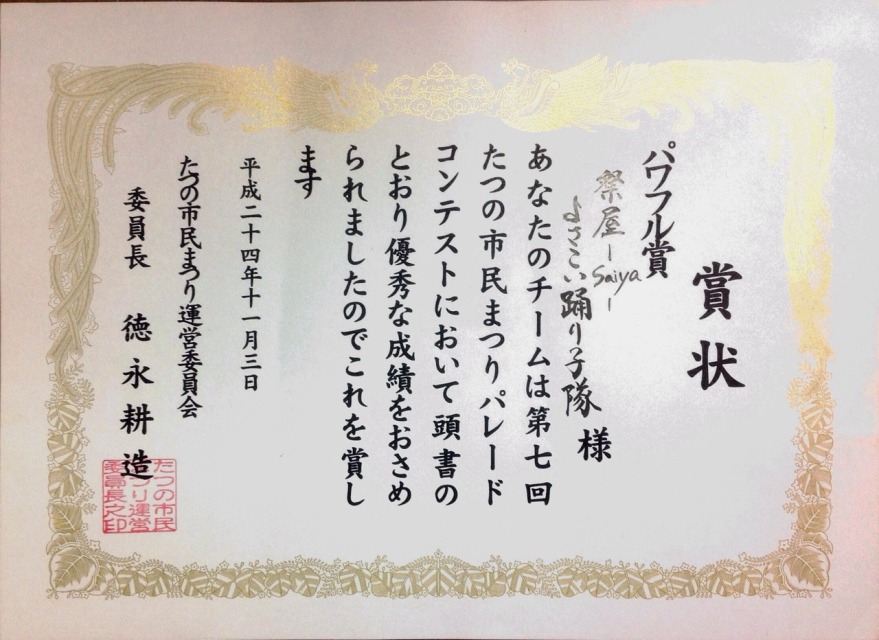 賞状
パワフル賞
祭屋-Saiya-
よさこい踊り子隊 様
あなたのチームは第七回
たつの市民まつりパレード
コンテストにおいて頭書の
とおり優秀な成績をおさめ
られましたのでこれを賞し
ます
平成二十四年十一月三日
たつの市民まつり運営委員会
委員長 徳永耕造
たつの市民
まつり運営
委員長之印